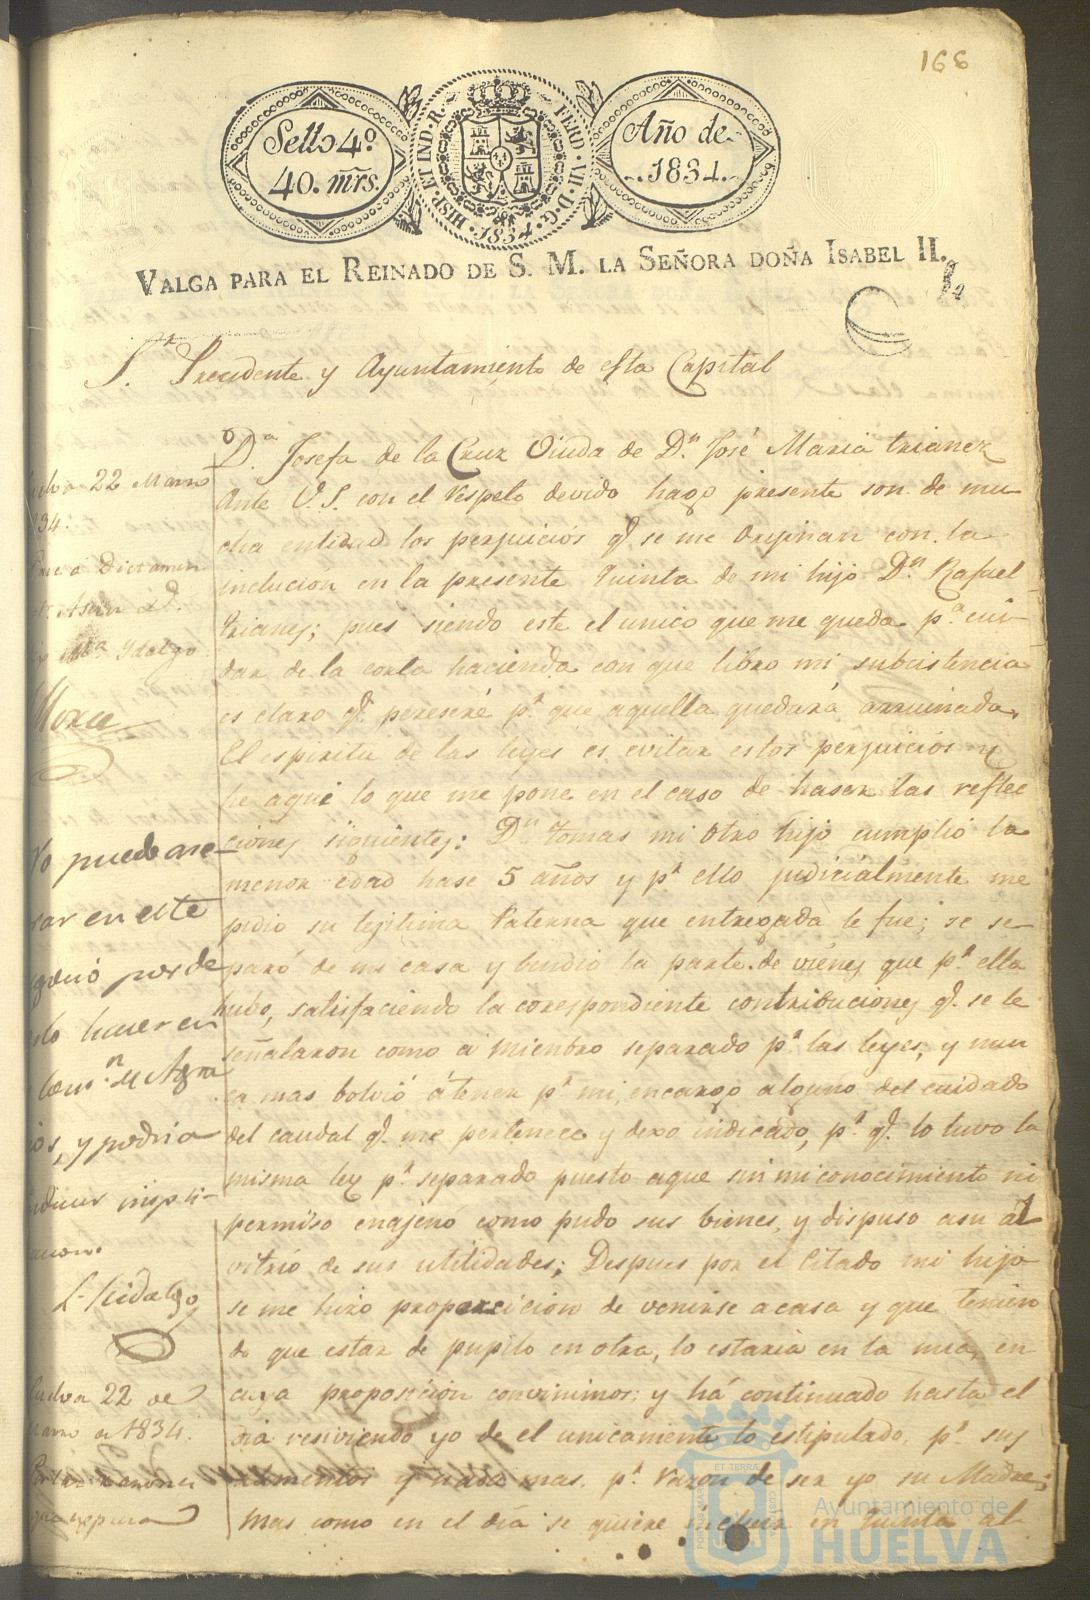 166
Sello 4º
40. mrs.
HISP. ET IND. R. FERD. VII. D. G.
1834
Año de
1834.
VALGA PARA EL REINADO DE S. M. LA SEÑORA DOÑA ISABEL II.
S.r Precidente y Ayuntamiento de esta Capital
D.ª Josefa de la Cruz Viuda de D.n José Maria trianez
Ante V.S. con el respeto devido hago presente son de mu
cha entidad los perjuiciós q.e se me originan con la
inclucion en la presente Quinta de mi hijo D.n Rafael
trianes; pues siendo este el unico que me queda p.ª cui
dar de la corta hacienda con que libro mi subcistencia
es claro q.e pereseré p.r que aquella quedará arruinada.
El espiritu de las leyes es evitar estos perjuiciós y
he aqui lo que me pone en el caso de haser las reflec
ciones siguientes: D.n tomas mi otro hijo cumplió la
menor edad hase 5 años y p.r ello judicialmente me
pidio su lejitima Paterna que entregada le fue; se se
paró de mi casa y bendio la parte de viénes que p.r ella
hubo, satisfaciendo la corespondiente contribuciones q.e se le
señalaron como á miembro separado p.r las leyes, y nun
ca mas bolvió átener p.r mi, encargo alguno del cuidado
del caudal q.e me pertenece y dexo indicado, p.r q.e lo tuvo la
misma ley p.r separado puesto aque sin mi conocimiento ni
permiso enajenó como pudo sus bienes, y dispuso asu al
vitrió de sus utilidades; Despues por el citado mi hijo
se me hizo proporcicion de venirse a casa y que tenien
do que estar de pupilo en otra, lo estaria en la mia, en
cuya proposición convinimos; y há continuado hasta el
dia resiviendo yo de el unicamente lo estipulado p.r sus
alimentos y nada mas, p.r razon de ser yo su Madre;
mas como en el dia se quiere incluir en Quinta al
22 Marzo
34.
a Dictamen
Ydalgo
No puede ase
rar en este
por de
lo hacer en
y podria
L. Hidalgo
22 de
de 1834.
Ayuntamiento de
HUELVA